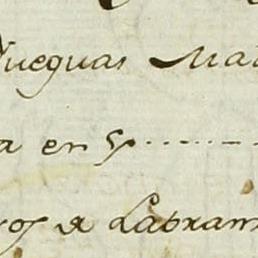 Yeguas Ma
a en 5........
ros de Labran